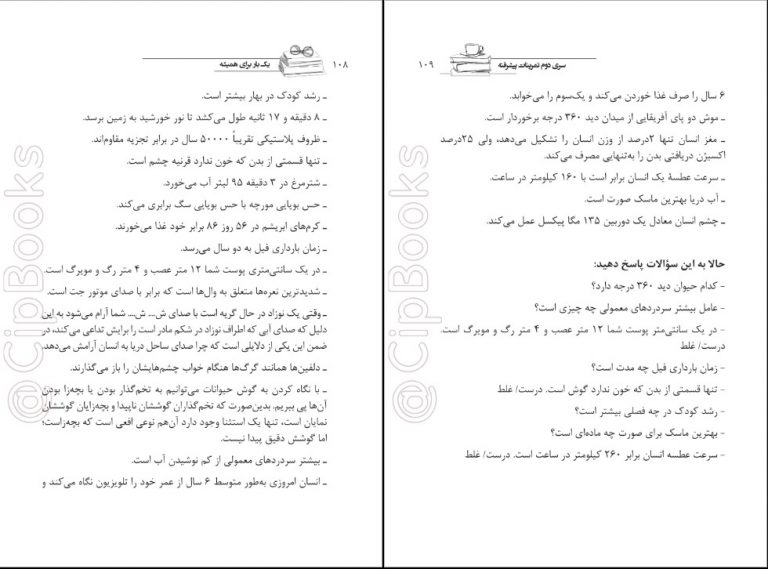 ۱۰۸
یک‌بار برای همیشه
ـ رشد کودک در بهار بیشتر است.
ـ ۸ دقیقه و ۱۷ ثانیه طول می‌کشد تا نور خورشید به زمین برسد.
ـ ظروف پلاستیکی تقریباً ۵۰۰۰۰ سال در برابر تجزیه مقاوم‌اند.
ـ تنها قسمتی از بدن که خون ندارد قرنیه چشم است.
ـ شترمرغ در ۳ دقیقه ۹۵ لیتر آب می‌خورد.
ـ حس بویایی مورچه با حس بویایی سگ برابری می‌کند.
ـ کرم‌های ابریشم در ۵۶ روز ۸۶ برابر خود غذا می‌خورند.
ـ زمان بارداری فیل به دو سال می‌رسد.
ـ در یک سانتی‌متری پوست شما ۱۲ متر عصب و ۴ متر رگ و مویرگ است.
ـ شدیدترین نعره‌ها متعلق به وال‌ها است که برابر با صدای موتور جت است.
ـ وقتی یک نوزاد در حال گریه است با صدای ش... ش... شما آرام می‌شود به این
دلیل که صدای آبی که اطراف نوزاد در شکم مادر است را برایش تداعی می‌کند، در
ضمن این یکی از دلایلی است که چرا صدای ساحل دریا به انسان آرامش می‌دهد.
ـ دلفین‌ها همانند گرگ‌ها هنگام خواب چشم‌هایشان را باز می‌گذارند.
ـ با نگاه کردن به گوش حیوانات می‌توانیم به تخم‌گذار بودن یا بچه‌زا بودن
آن‌ها پی ببریم. بدین‌صورت که تخم‌گذاران گوششان ناپیدا و بچه‌زایان گوششان
نمایان است، تنها یک استثنا وجود دارد آن‌هم نوعی افعی است که بچه‌زاست؛
اما گوشش دقیق پیدا نیست.
ـ بیشتر سردردهای معمولی از کم نوشیدن آب است.
ـ انسان امروزی به‌طور متوسط ۶ سال از عمر خود را تلویزیون نگاه می‌کند و
سری دوم تمرینات پیشرفته
۱۰۹
۶ سال را صرف غذا خوردن می‌کند و یک‌سوم را می‌خوابد.
ـ موش دو پای آفریقایی از میدان دید ۳۶۰ درجه برخوردار است.
ـ مغز انسان تنها ۲درصد از وزن انسان را تشکیل می‌دهد، ولی ۲۵درصد
اکسیژن دریافتی بدن را به‌تنهایی مصرف می‌کند.
ـ سرعت عطسهٔ یک انسان برابر است با ۱۶۰ کیلومتر در ساعت.
ـ آب دریا بهترین ماسک صورت است.
ـ چشم انسان معادل یک دوربین ۱۳۵ مگا پیکسل عمل می‌کند.
حالا به این سؤالات پاسخ دهید:
- کدام حیوان دید ۳۶۰ درجه دارد؟
- عامل بیشتر سردردهای معمولی چه چیزی است؟
- در یک سانتی‌متر پوست شما ۱۲ متر عصب و ۴ متر رگ و مویرگ است.
درست/ غلط
- زمان بارداری فیل چه مدت است؟
- تنها قسمتی از بدن که خون ندارد گوش است. درست/ غلط
- رشد کودک در چه فصلی بیشتر است؟
- بهترین ماسک برای صورت چه ماده‌ای است؟
- سرعت عطسه انسان برابر ۲۶۰ کیلومتر در ساعت است. درست/ غلط
@CipBooks
@CipBooks